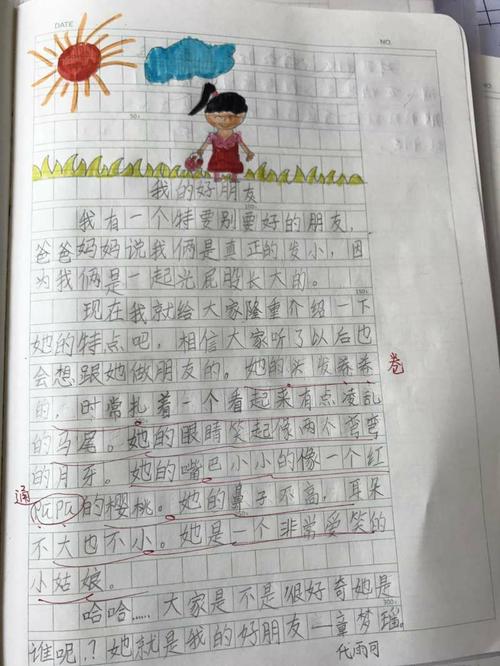 DATE
NO.
我的好朋友
50↓
我有一个特要别要好的朋友，
爸爸妈妈说我俩是真正的发小，因
为我俩是一起光屁股长大的。
150↓
现在我就给大家隆重介绍一下
她的特点吧，相信大家听了以后也
会想跟她做朋友的。她的头发卷卷
卷
的，时常扎着一个看起来有点凌乱
的马尾。她的眼睛笑起像两个弯弯
的月牙。她的嘴巴小小的像一个红
通
的樱桃。她的鼻子不高，耳朵
不大也不小。她是一个非常爱笑的
小姑娘。
哈哈……大家是不是很好奇她是
300↓
谁呢，？她就是我的好朋友—童梦瑶。